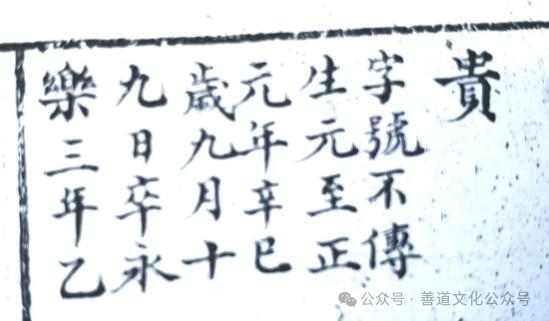 貴
字號不傳
生元至正
元年辛巳
歲九月十
九日卒永
樂三年乙
公众号·善道文化公众号